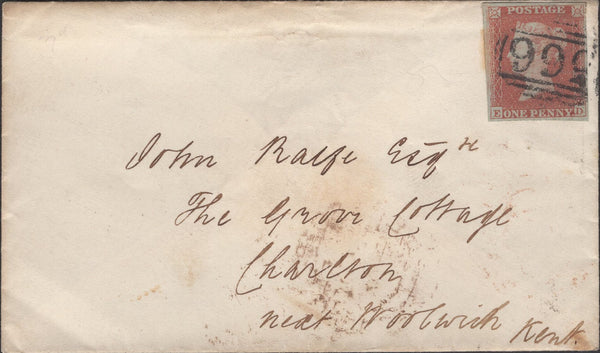 POSTAGE
999
E ONE PENNY D
John Ralfe Esqre
The Grove Cottage
Charlton
near Woolwich Kent.